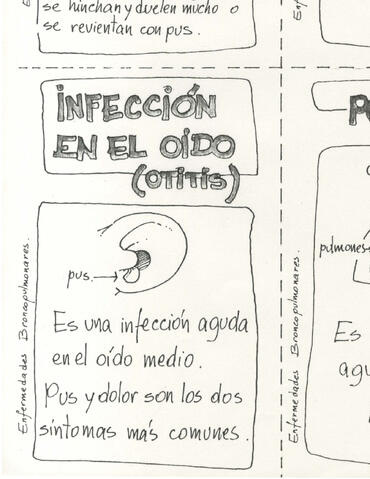 se hinchan y duelen mucho o
se revientan con pus.
INFECCIÓN
EN EL OÍDO
(OTITIS)
pus.
Es una infección aguda
en el oído medio.
Pus y dolor son los dos
síntomas más comunes.
Enfermedades Broncopulmonares.
pulmones
Es
agu
Enfermedades Broncopulmonares.